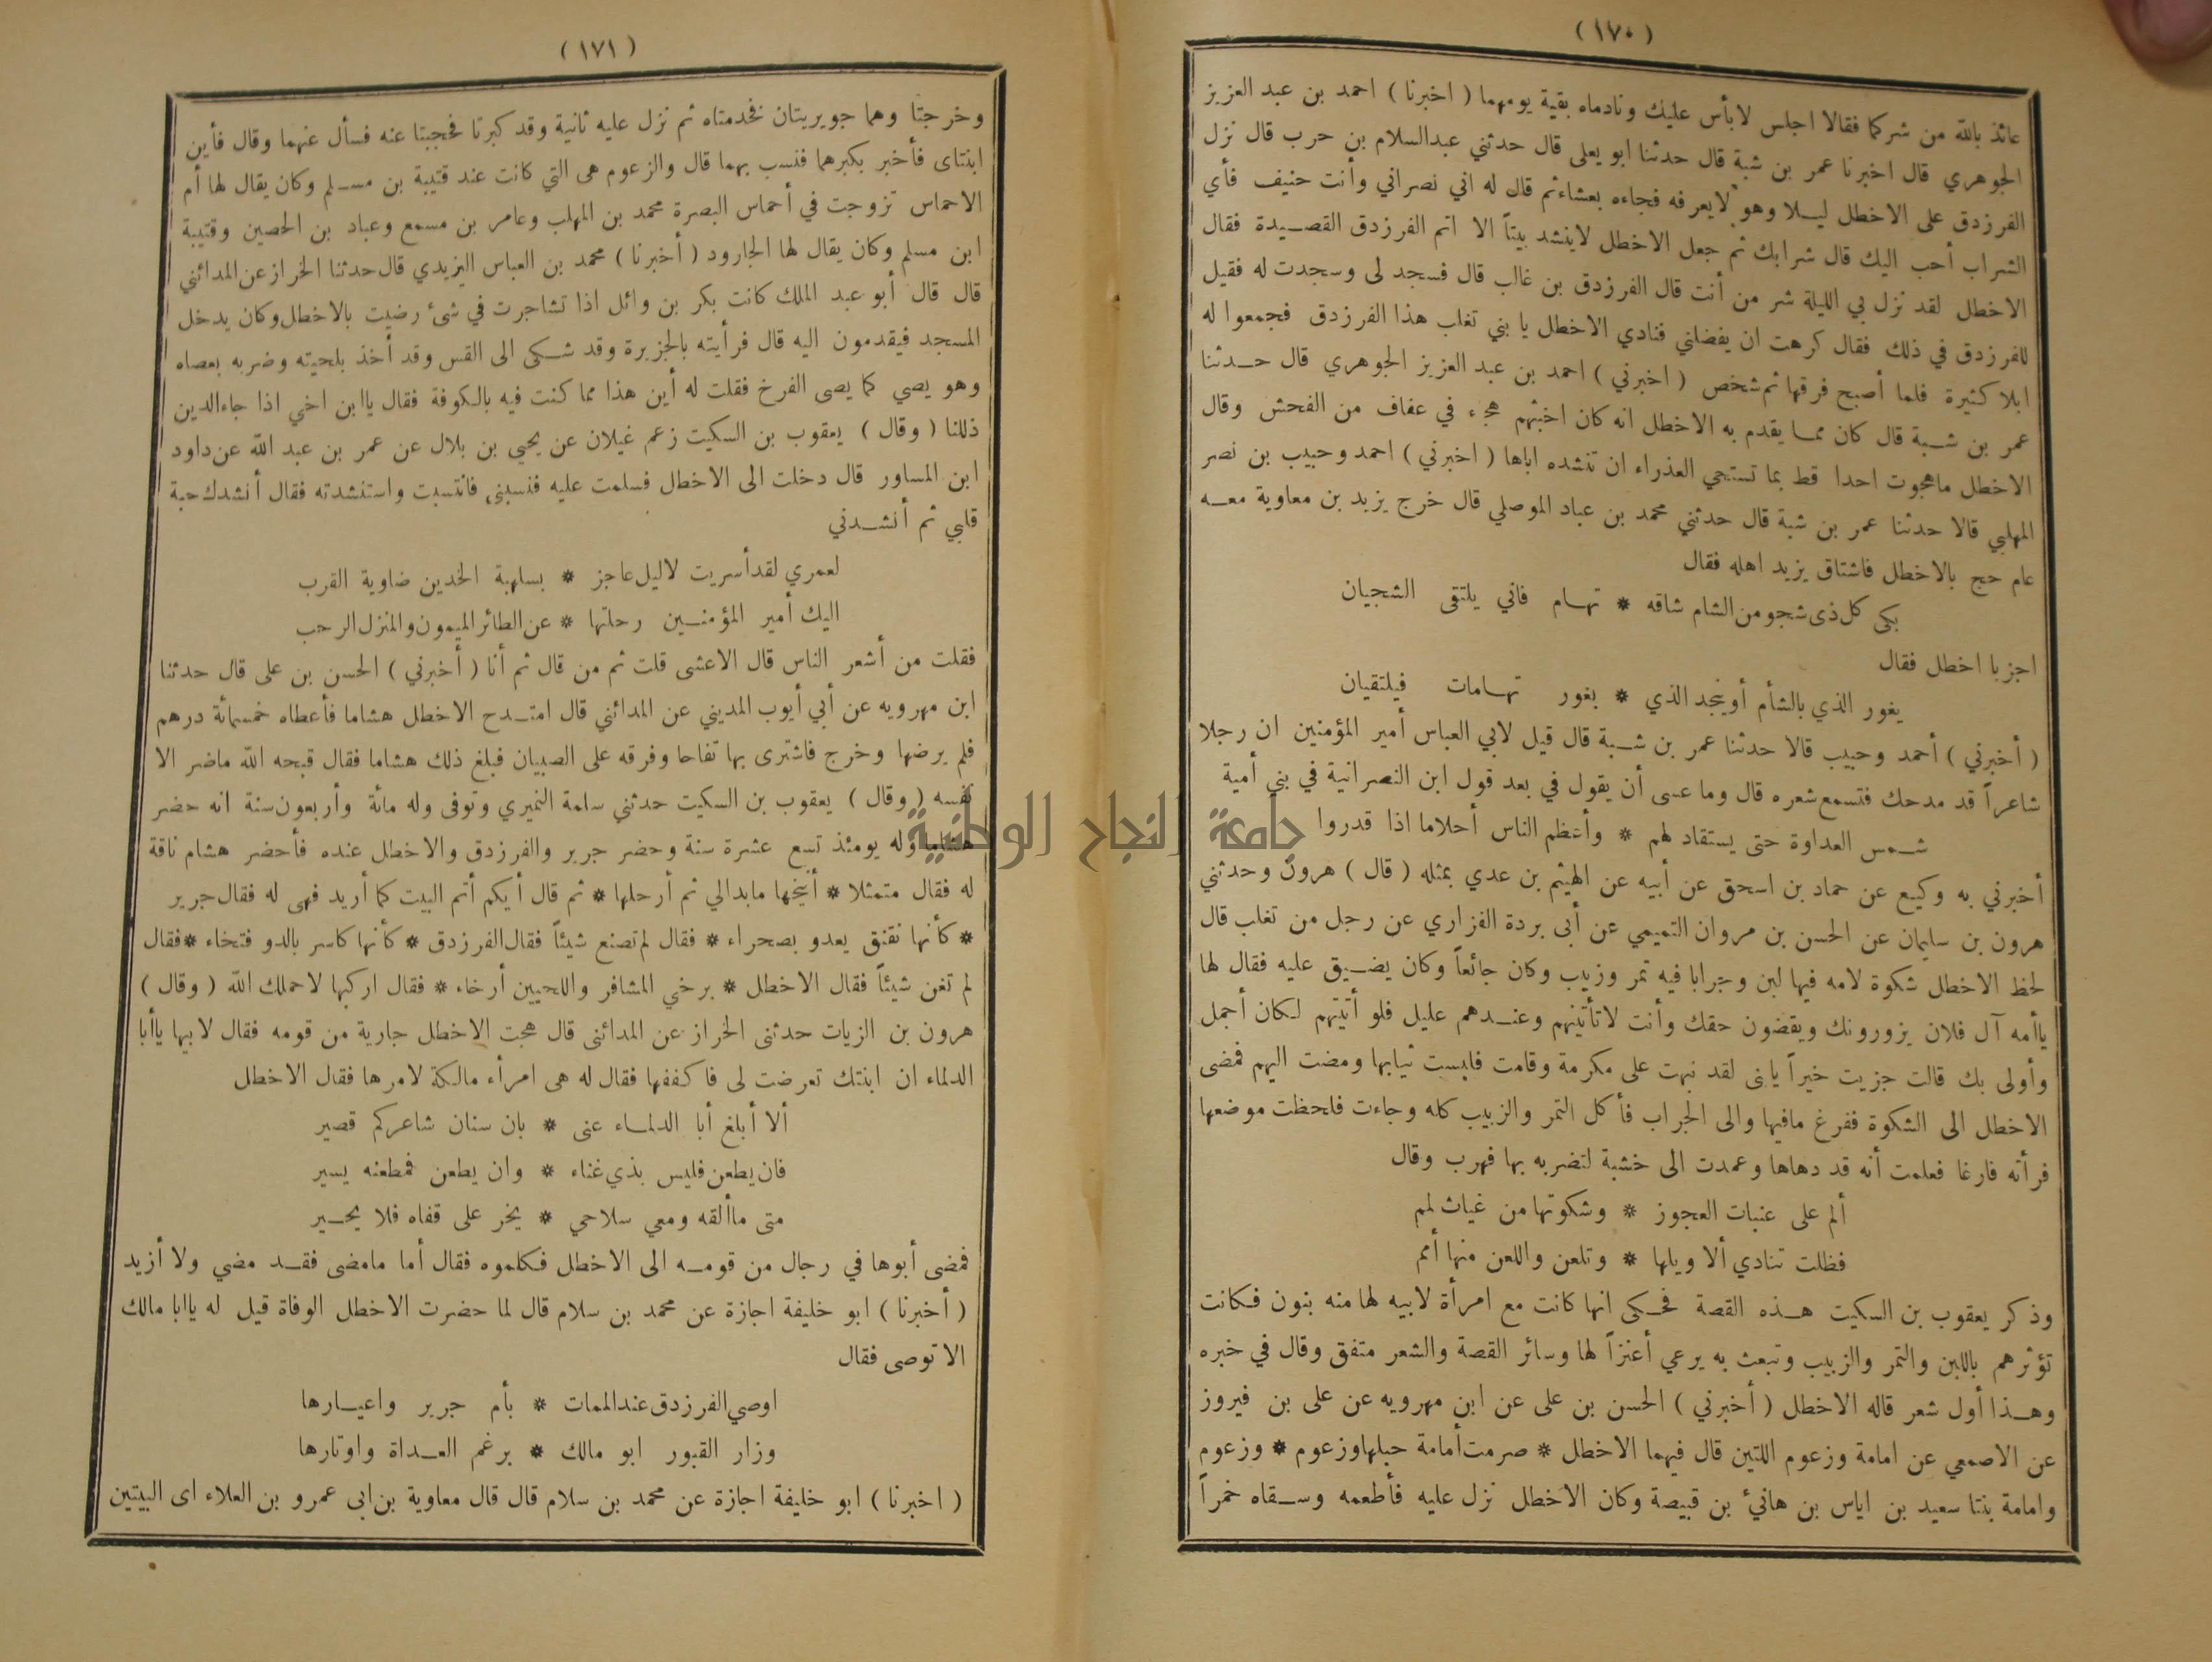 ( ١٧٠ )
عائذ بالله من شركما فقالا اجلس لابأس عليك ونادماه بقية يومهما ( اخبرنا ) احمد بن عبد العزيز
الجوهري قال اخبرنا عمر بن شبة قال حدثنا ابو يعلى قال حدثني عبدالسلام بن حرب قال نزل
الفرزدق على الاخطل ليلا وهو لايعرفه فجاءه بعشاء ثم قال له اني نصراني وأنت حنيف فأي
الشراب أحب اليك قال شرابك ثم جعل الاخطل لاينشد بيتاً الا اتم الفرزدق القصيدة فقال
الاخطل لقد نزل بي الليلة شر من أنت قال الفرزدق بن غالب قال فسجد لى وسجدت له فقيل
للفرزدق في ذلك فقال كرهت ان يفضلني فنادي الاخطل يا بني تغلب هذا الفرزدق فجمعوا له
ابلا كثيرة فلما أصبح فرقها ثم شخص ( اخبرني ) احمد بن عبد العزيز الجوهري قال حدثنا
عمر بن شبة قال كان مما يقدم به الاخطل انه كان اخبثهم هجاء في عفاف من الفحش وقال
الاخطل ماهجوت احدا قط بما تستحي العذراء ان تنشده اباها ( اخبرني ) احمد وحبيب بن نصر
المهلبي قالا حدثنا عمر بن شبة قال حدثني محمد بن عباد الموصلي قال خرج يزيد بن معاوية معه
عام حج بالاخطل فاشتاق يزيد اهله فقال
بكى كل ذى شجو من الشام شاقه * تهام فاني يلتقى الشجيان
اجز يا اخطل فقال
يغور الذي بالشأم أو ينجد الذي * بغور تهامات فيلتقيان
( أخبرني ) أحمد وحبيب قالا حدثنا عمر بن شبة قال قيل لابي العباس أمير المؤمنين ان رجلا
شاعراً قد مدحك فتسمع شعره قال وما عسى أن يقول في بعد قول ابن النصرانية في بني أمية
شمس العداوة حتى يستقاد لهم * وأعظم الناس أحلاما اذا قدروا
أخبرني به وكيع عن حماد بن اسحق عن أبيه عن الهيثم بن عدي بمثله ( قال ) هرون وحدثني
هرون بن سليمان عن الحسن بن مروان التميمي عن أبى بردة الفزاري عن رجل من تغلب قال
لحظ الاخطل شكوة لامه فيها لبن وجرابا فيه تمر وزبيب وكان جائعاً وكان يضيق عليه فقال لها
ياأمه آل فلان يزورونك ويقضون حقك وأنت لاتأتينهم وعندهم عليل فلو أتيتهم لكان أجمل
وأولى بك قالت جزيت خيراً يابنى لقد نبهت على مكرمة وقامت فلبست ثيابها ومضت اليهم فمضى
الاخطل الى الشكوة ففرغ مافيها والى الجراب فأكل التمر والزبيب كله وجاءت فلحظت موضعها
فرأته فارغا فعلمت أنه قد دهاها وعمدت الى خشبة لتضربه بها فهرب وقال
ألم على عنبات العجوز * وشكوتها من غياث لمم
فظلت تنادي ألا ويلها * وتلعن واللعن منها أمم
وذكر يعقوب بن السكيت هذه القصة فحكى انها كانت مع امرأة لابيه لها منه بنون فكانت
تؤثرهم باللبن والتمر والزبيب وتبعث به يرعي أعنزاً لها وسائر القصة والشعر متفق وقال في خبره
وهذا أول شعر قاله الاخطل ( أخبرني ) الحسن بن على عن ابن مهرويه عن على بن فيروز
عن الاصمعي عن امامة وزعوم اللتين قال فيهما الاخطل * صرمت أمامة حبلها وزعوم * وزعوم
وامامة بنتا سعيد بن اياس بن هانئ بن قبيصة وكان الاخطل نزل عليه فأطعمه وسقاه خمراً
( ١٧١ )
وخرجتا وهما جويريتان فخدمتاه ثم نزل عليه ثانية وقد كبرتا فحجبتا عنه فسأل عنهما وقال فأين
ابنتاى فأخبر بكبرهما فنسب بهما قال والزعوم هى التي كانت عند قتيبة بن مسلم وكان يقال لها أم
الاحماس تزوجت في أحماس البصرة محمد بن المهلب وعامر بن مسمع وعباد بن الحصين وقتيبة
ابن مسلم وكان يقال لها الجارود ( أخبرنا ) محمد بن العباس اليزيدي قال حدثنا الخراز عن المدائني
قال قال أبو عبد الملك كانت بكر بن وائل اذا تشاجرت في شئ رضيت بالاخطل وكان يدخل
المسجد فيقدمون اليه قال فرأيته بالجزيرة وقد شكى الى القس وقد أخذ بلحيته وضربه بعصاه
وهو يصي كما يصى الفرخ فقلت له أين هذا مما كنت فيه بالكوفة فقال ياابن اخي اذا جاء الدين
ذللنا ( وقال ) يعقوب بن السكيت زعم غيلان عن يحيي بن بلال عن عمر بن عبد الله عن داود
ابن المساور قال دخلت الى الاخطل فسلمت عليه فنسبنى فانتسبت واستنشدته فقال أنشدك حبة
قلبي ثم أنشدني
لعمري لقد أسريت لاليل عاجز * بسلهبة الخدين ضاوية القرب
اليك أمير المؤمنين رحلتها * عن الطائر الميمون والمنزل الرحب
فقلت من أشعر الناس قال الاعشى قلت ثم من قال ثم أنا ( أخبرني ) الحسن بن على قال حدثنا
ابن مهرويه عن أبي أيوب المديني عن المدائني قال امتدح الاخطل هشاما فأعطاه خمسمائة درهم
فلم يرضها وخرج فاشترى بها تفاحا وفرقه على الصبيان فبلغ ذلك هشاما فقال قبحه الله ماضر الا
نفسه ( وقال ) يعقوب بن السكيت حدثني سلمة النميري وتوفى وله مائة وأربعون سنة انه حضر
هشاما وله يومئذ تسع عشرة سنة وحضر جرير والفرزدق والاخطل عنده فأحضر هشام ناقة
له فقال متمثلا * أنيخها مابدالي ثم أرحلها * ثم قال أيكم أتم البيت كما أريد فهى له فقال جرير
* كأنها نقنق يعدو بصحراء * فقال لم تصنع شيئاً فقال الفرزدق * كأنها كاسر بالدو فتخاء * فقال
لم تغن شيئاً فقال الاخطل * برخي المشافر واللحيين أرخاء * فقال اركبها لاحملك الله ( وقال )
هرون بن الزيات حدثنى الخراز عن المدائنى قال هجت الاخطل جارية من قومه فقال لابيها ياأبا
الدلماء ان ابنتك تعرضت لى فاكففها فقال له هى امرأء مالكة لامرها فقال الاخطل
ألا أبلغ أبا الدلماء عنى * بان سنان شاعركم قصير
فان يطعن فليس بذي غناء * وان يطعن فمطعنه يسير
متى ماألقه ومعي سلاحي * يخر على قفاه فلا يحير
فمضى أبوها في رجال من قومه الى الاخطل فكلموه فقال أما مامضى فقد مضي ولا أزيد
( أخبرنا ) ابو خليفة اجازة عن محمد بن سلام قال لما حضرت الاخطل الوفاة قيل له ياابا مالك
الا توصى فقال
اوصي الفرزدق عند الممات * بأم جرير واعيارها
وزار القبور ابو مالك * برغم العداة واوتارها
( اخبرنا ) ابو خليفة اجازة عن محمد بن سلام قال قال معاوية بن ابى عمرو بن العلاء اى البيتين
جامعة النجاح الوطنية